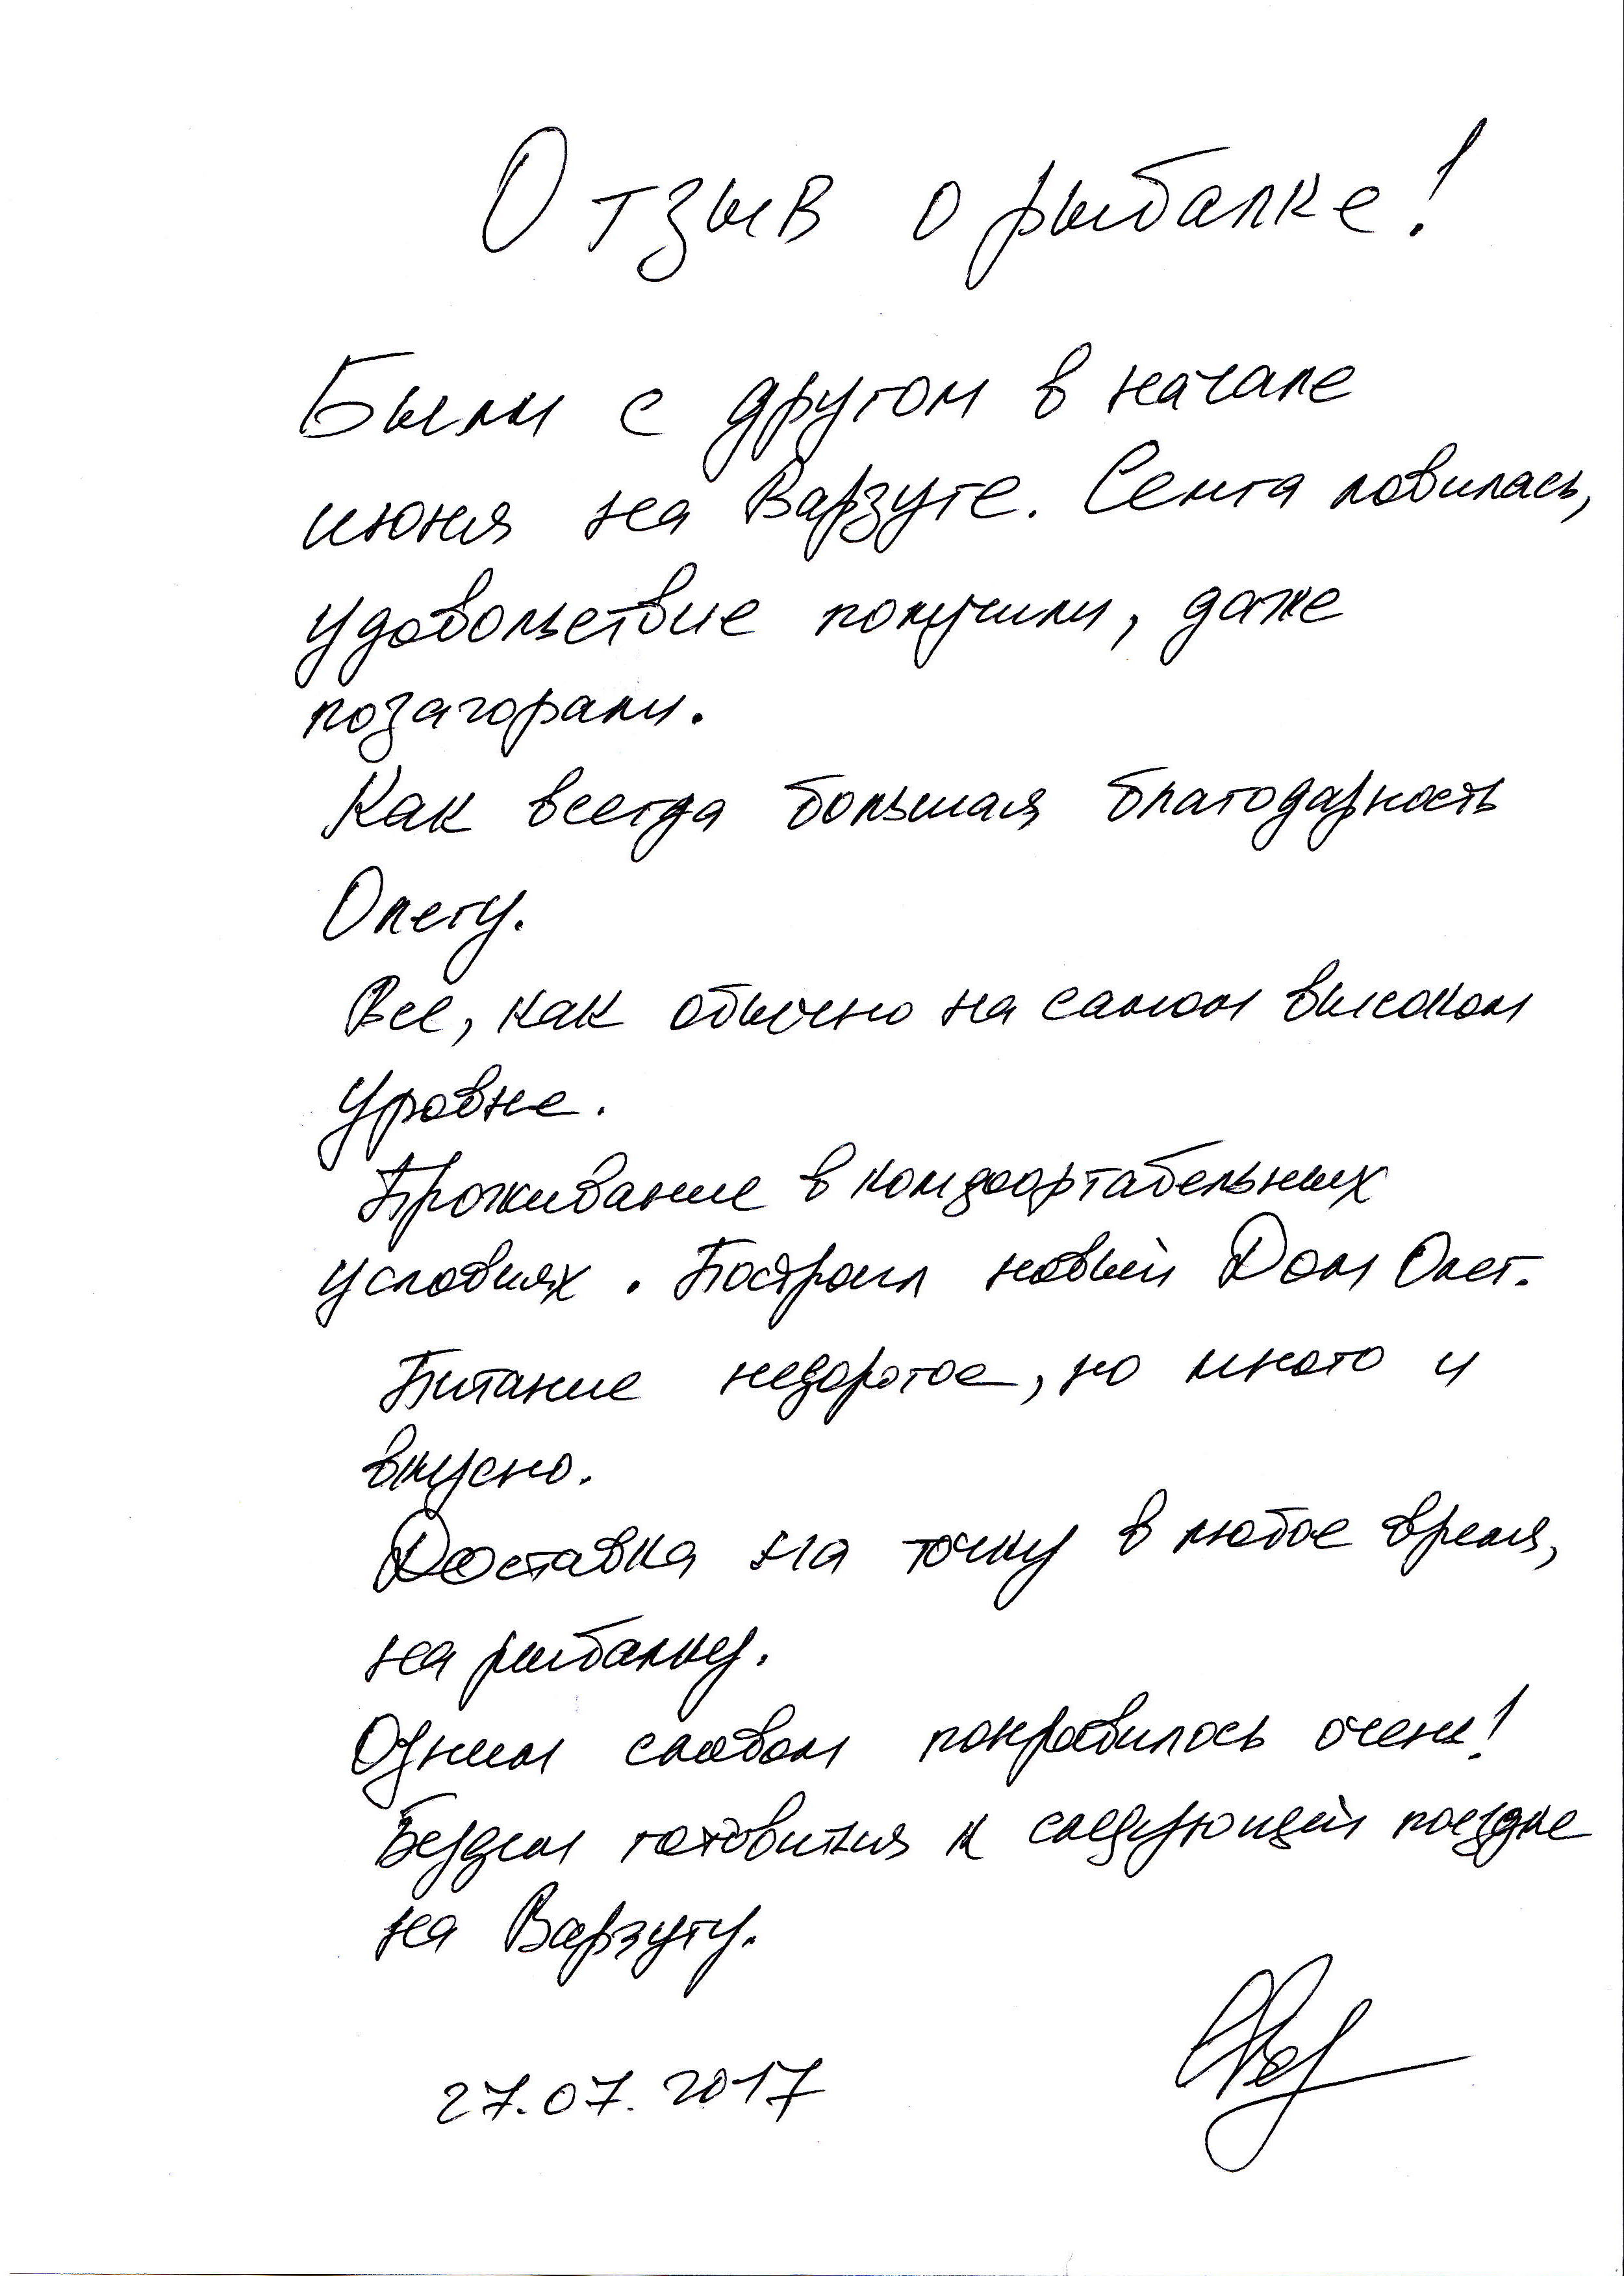 Отзыв о рыбалке!
Были с другом в начале
июня на Варзуге. Семга ловилась,
удовольствие получили, даже
позагорали.
Как всегда большая благодарность
Олегу.
Все, как обычно на самом высоком
уровне.
Проживание в комфортабельных
условиях. Построил новый Дом Олег.
Питание недорогое, но много и
вкусно.
Доставка на точку в любое время,
на рыбалку.
Одним словом понравилось очень!
Будем готовится к следующей поездке
на Варзугу.
27.07.2017